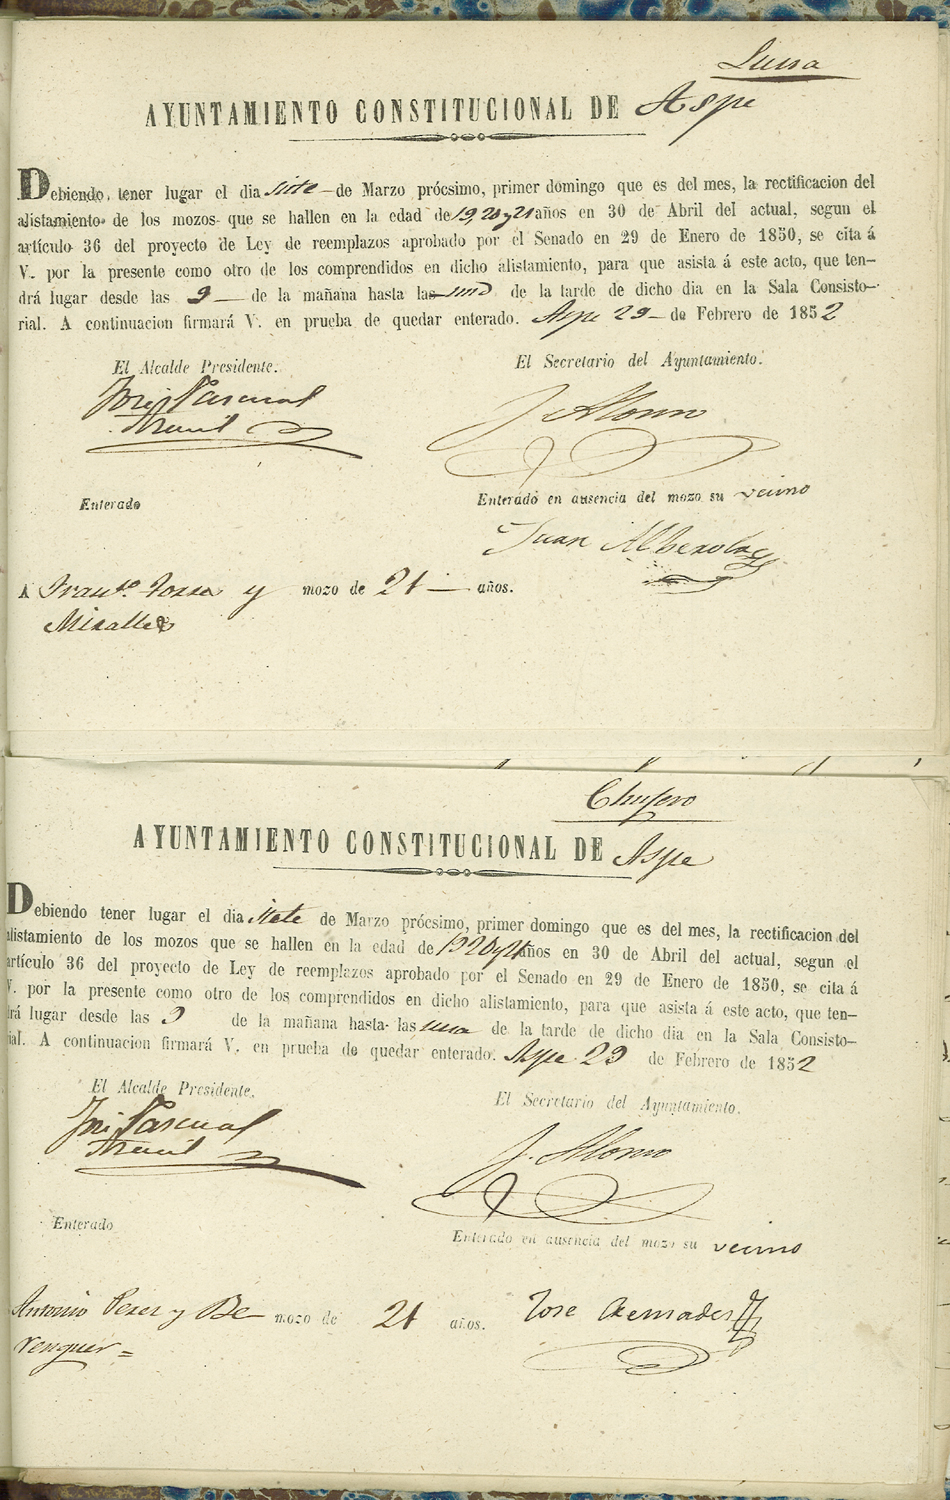 AYUNTAMIENTO CONSTITUCIONAL DE Aspe
Debiendo tener lugar el dia siete de Marzo prócsimo, primer domingo que es del mes, la rectificacion del
alistamiento de los mozos que se hallen en la edad de 19, 20 y 21 años en 30 de Abril del actual, segun el
artículo 36 del proyecto de Ley de reemplazos aprobado por el Senado en 29 de Enero de 1850, se cita á
V. por la presente como otro de los comprendidos en dicho alistamiento, para que asista á este acto, que ten-
drá lugar desde las 9 de la mañana hasta la una de la tarde de dicho dia en la Sala Consisto-
rial. A continuacion firmará V. en prueba de quedar enterado. Aspe 29 de Febrero de 1852
El Alcalde Presidente. El Secretario del Ayuntamiento.
José Pascual J. Alonso
Enterado Enterado en ausencia del mozo su vecino
Juan Alberola
A Franco. y mozo de 21 años.
Miralles
AYUNTAMIENTO CONSTITUCIONAL DE Aspe
Debiendo tener lugar el dia siete de Marzo prócsimo, primer domingo que es del mes, la rectificacion del
alistamiento de los mozos que se hallen en la edad de 19 20 y 21 años en 30 de Abril del actual, segun el
artículo 36 del proyecto de Ley de reemplazos aprobado por el Senado en 29 de Enero de 1850, se cita á
V. por la presente como otro de los comprendidos en dicho alistamiento, para que asista á este acto, que ten-
drá lugar desde las 9 de la mañana hasta las una de la tarde de dicho dia en la Sala Consisto-
rial. A continuacion firmará V. en prueba de quedar enterado. Aspe 29 de Febrero de 1852
El Alcalde Presidente. El Secretario del Ayuntamiento.
José Pascual J. Alonso
Enterado Enterado en ausencia del mozo su vecino
Antonio Perez y Be- mozo de 21 años. Jose
renguer =